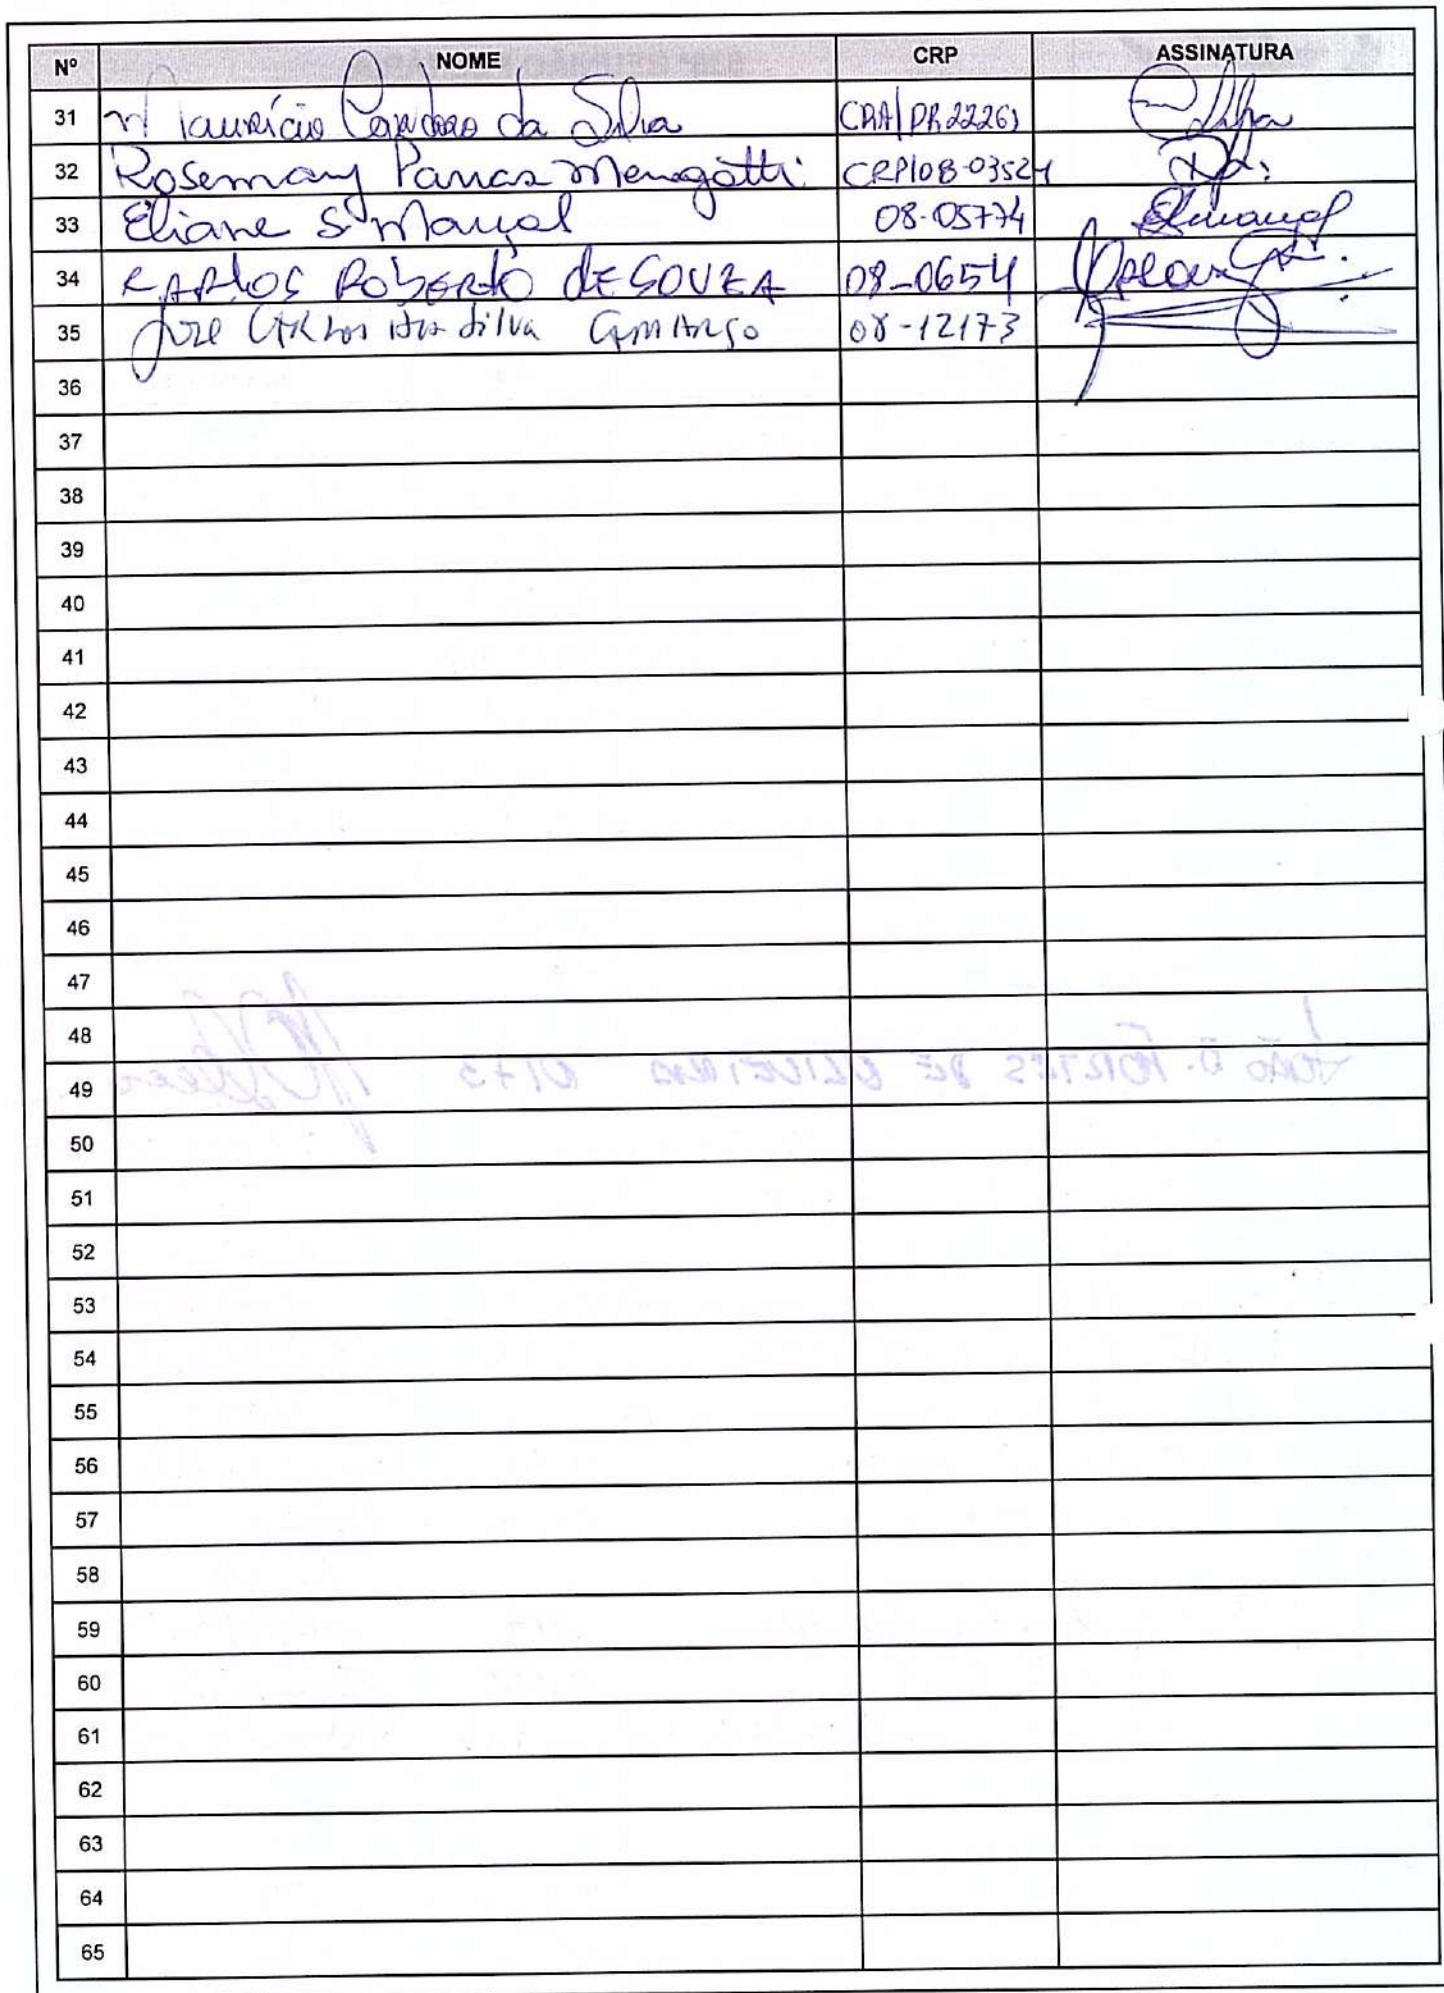 Nº NOME CRP ASSINATURA
31 Maurício Cardoso da Silva CRA/PR 22263 Silva
32 Rosemary Parras Mengotti CRP/08-03524
33 Eliane S. Marçal 08-05774 Elmarçal
34 CARLOS ROBERTO DE SOUZA 08-0654
35 José CARLOS da Silva CAMARGO 08-12173
36
37
38
39
40
41
42
43
44
45
46
47
48
49
50
51
52
53
54
55
56
57
58
59
60
61
62
63
64
65